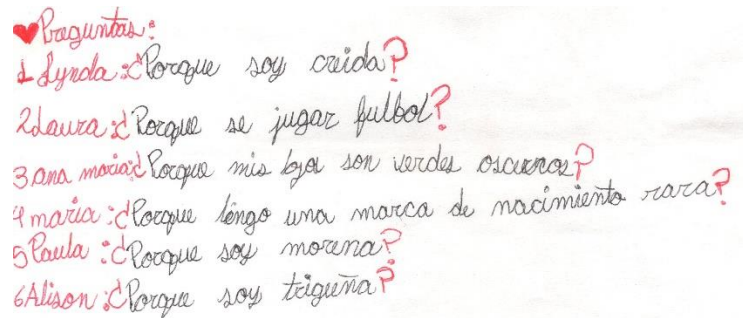 ❤Preguntas:
1 Lynda: ¿Porque soy creida?
2 Laura: ¿Porque se jugar fulbol?
3 ana maria: ¿Porque mis lojos son verdes oscuros?
4 maria: ¿Porque tengo una marca de nacimiento rara?
5 Paula: ¿Porque soy morena?
6 Alison: ¿Porque soy trigueña?